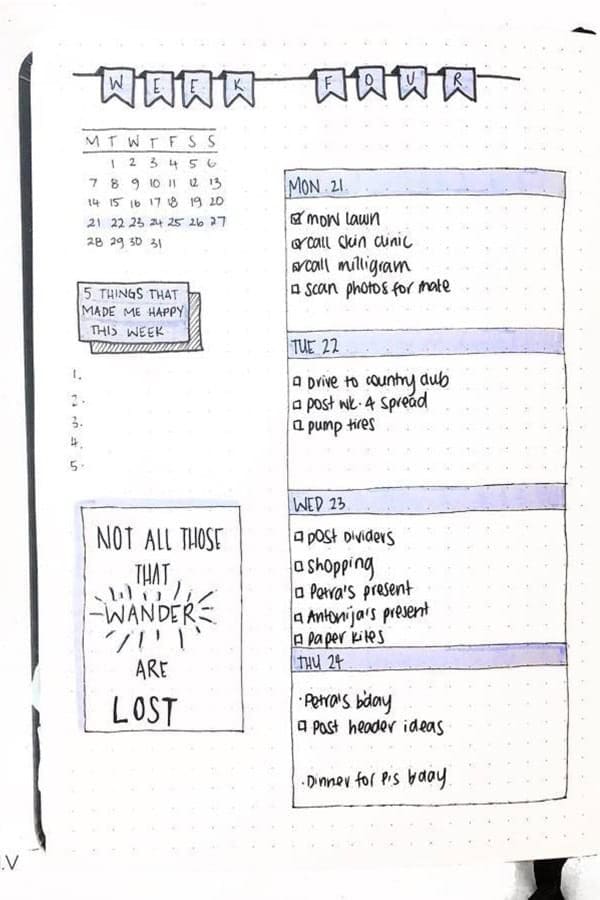 WEEK FOUR
M T W T F S S
1 2 3 4 5 6
7 8 9 10 11 12 13
14 15 16 17 18 19 20
21 22 23 24 25 26 27
28 29 30 31
5 THINGS THAT
MADE ME HAPPY
THIS WEEK
1.
2.
3.
4.
5.
NOT ALL THOSE
THAT
WANDER
ARE
LOST
MON 21
mow lawn
call skin clinic
call milligram
scan photos for mate
TUE 22
Drive to country club
post wk. 4 spread
pump tires
WED 23
post dividers
shopping
Petra's present
Antonija's present
paper kites
THU 24
· Petra's b'day
post header ideas
· Dinner for P's b'day
.V